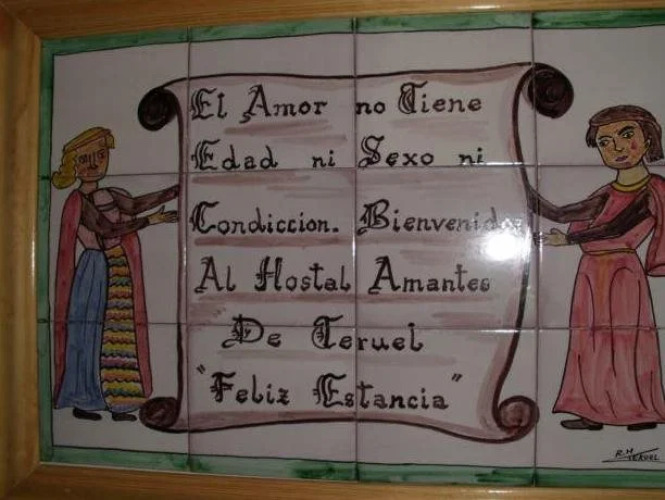 El Amor no Tiene
Edad ni Sexo ni
Condiccion. Bienvenidos
Al Hostal Amantes
De Teruel
"Feliz Estancia"
R.M
TERUEL